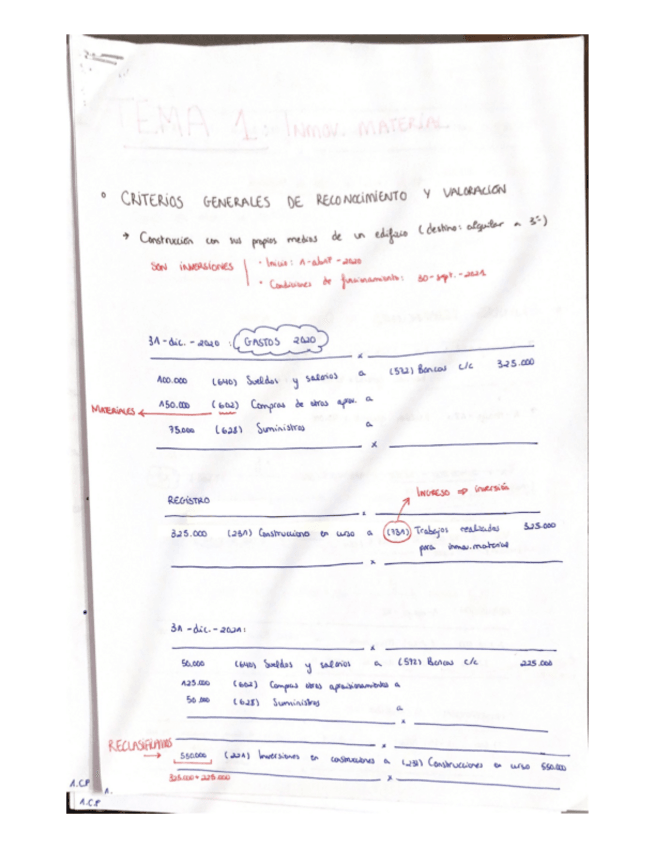 TEMA 1: INMOV. MATERIAL
° CRITERIOS GENERALES DE RECONOCIMIENTO Y VALORACIÓN
→ Construcción con sus propios medios de un edificio (destino: alquilar a 3º)
SON INVERSIONES
· Inicio: 1-abril-2020
· Condiciones de funcionamiento: 30-sept.-2021
31-dic.-2020: GASTOS 2020
x
100.000 (640) Sueldos y salarios a (572) Bancos c/c 325.000
MATERIALES ← 150.000 (602) Compras de otros aprov. a
75.000 (628) Suministros a
x
INGRESO ⇒ inversión
REGISTRO
x
325.000 (231) Construcciones en curso a (731) Trabajos realizados 325.000
para inmov. material
x
31-dic.-2021:
x
50.000 (640) Sueldos y salarios a (572) Bancos c/c 225.000
125.000 (602) Compras otros aprovisionamientos a
50.000 (628) Suministros a
x
RECLASIFICAMOS → x
550.000 (221) Inversiones en construcciones a (231) Construcciones en curso 550.000
325.000 + 225.000
x
A.C.P
A.
A.C.P